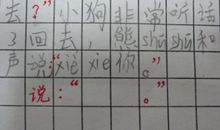 去?”小狗非常听话
了回去,熊shī shī和
声说:“xiè xie你。”
说:“  。”